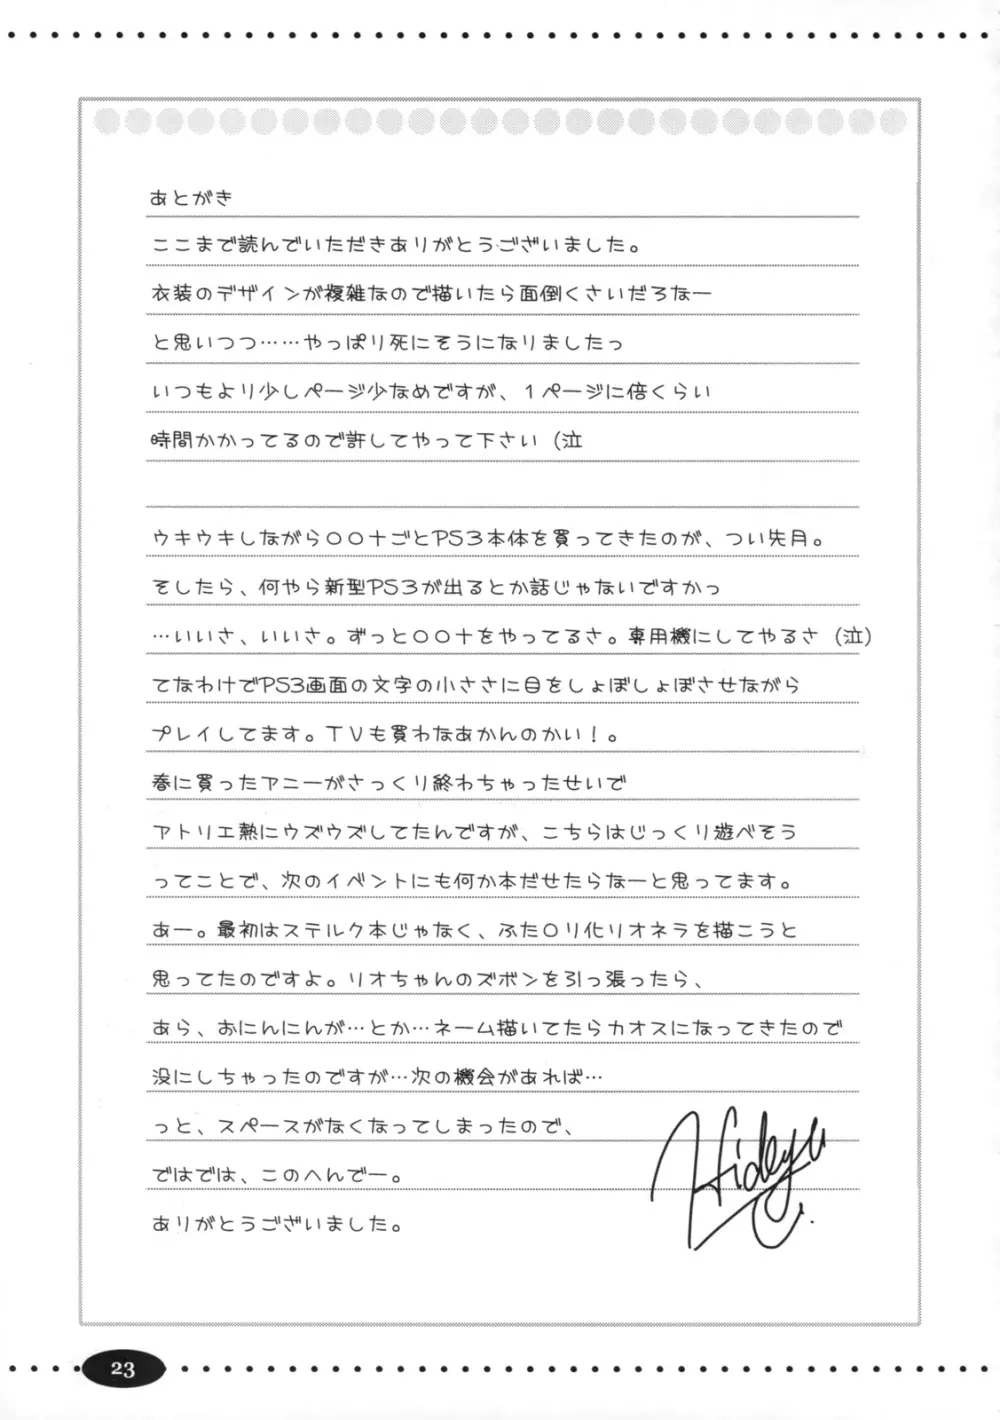 あとがき
ここまで読んでいただきありがとうございました。
衣装のデザインが複雑なので描いたら面倒くさいだろなー
と思いつつ……やっぱり死にそうになりましたっ
いつもより少しページ少なめですが、１ページに倍くらい
時間かかってるので許してやって下さい（泣
ウキウキしながら〇〇十ごとPS3本体を買ってきたのが、つい先月。
そしたら、何やら新型PS3が出るとか話じゃないですかっ
…いいさ、いいさ。ずっと〇〇十をやってるさ。専用機にしてやるさ（泣）
てなわけでPS3画面の文字の小ささに目をしょぼしょぼさせながら
プレイしてます。ＴＶも買わなあかんのかい！。
春に買ったアニーがさっくり終わちゃったせいで
アトリエ熱にウズウズしてたんですが、こちらはじっくり遊べそう
ってことで、次のイベントにも何か本だせたらなーと思ってます。
あー。最初はステルク本じゃなく、ふた〇リ化リオネラを描こうと
思ってたのですよ。リオちゃんのズボンを引っ張ったら、
あら、おにんにんが…とか…ネーム描いてたらカオスになってきたので
没にしちゃったのですが…次の機会があれば…
っと、スペースがなくなってしまったので、
ではでは、このへんでー。
ありがとうございました。
Hideyu
23